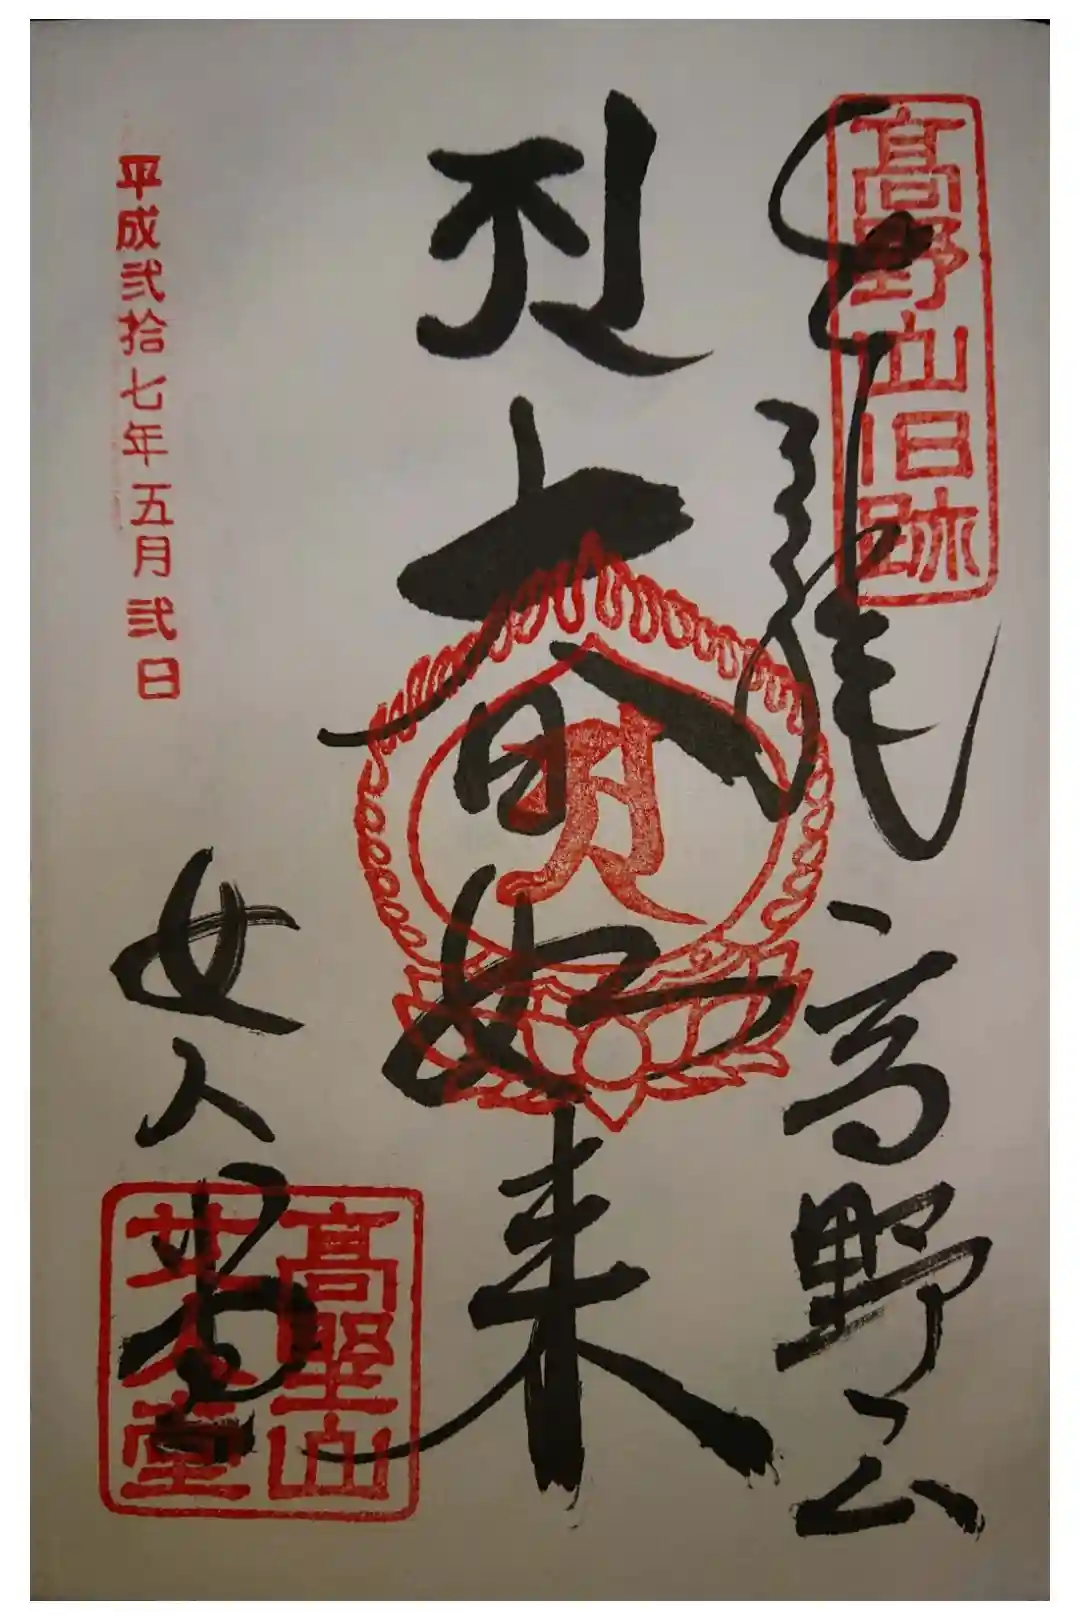 髙野山旧跡
高野山
大日如来
女人堂
平成弐拾七年五月弐日
髙野山
女人堂